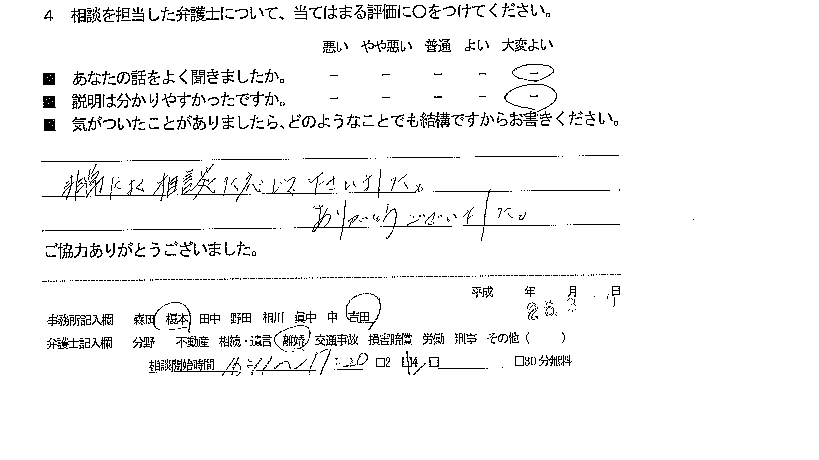 4 相談を担当した弁護士について、当てはまる評価に〇をつけてください。
悪い やや悪い 普通 よい 大変よい
■ あなたの話をよく聞きましたか。 - - - - -
■ 説明は分かりやすかったですか。 - - - - -
■ 気がついたことがありましたら、どのようなことでも結構ですからお書きください。
非常によく相談に応じて下さいました。
ありがとうございました。
ご協力ありがとうございました。
平成 年 月 日
事務所記入欄 森田 榎本 田中 野田 相川 眞中 中 吉田
弁護士記入欄 分野 不動産 相続・遺言 離婚 交通事故 損害賠償 労働 刑事 その他（ ）
相談開始時間 □2 □ □30分無料